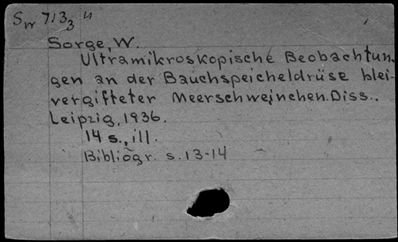 Sw 7133 u
Sorge, W.
Ultramikroskopische Beobachtun.
gen an der Bauchspeicheldrüse blei-
vergifteter Meerschweinchen. Diss..
Leipzig, 1936.
14 s., ill.
Bibliogr. s. 13-14